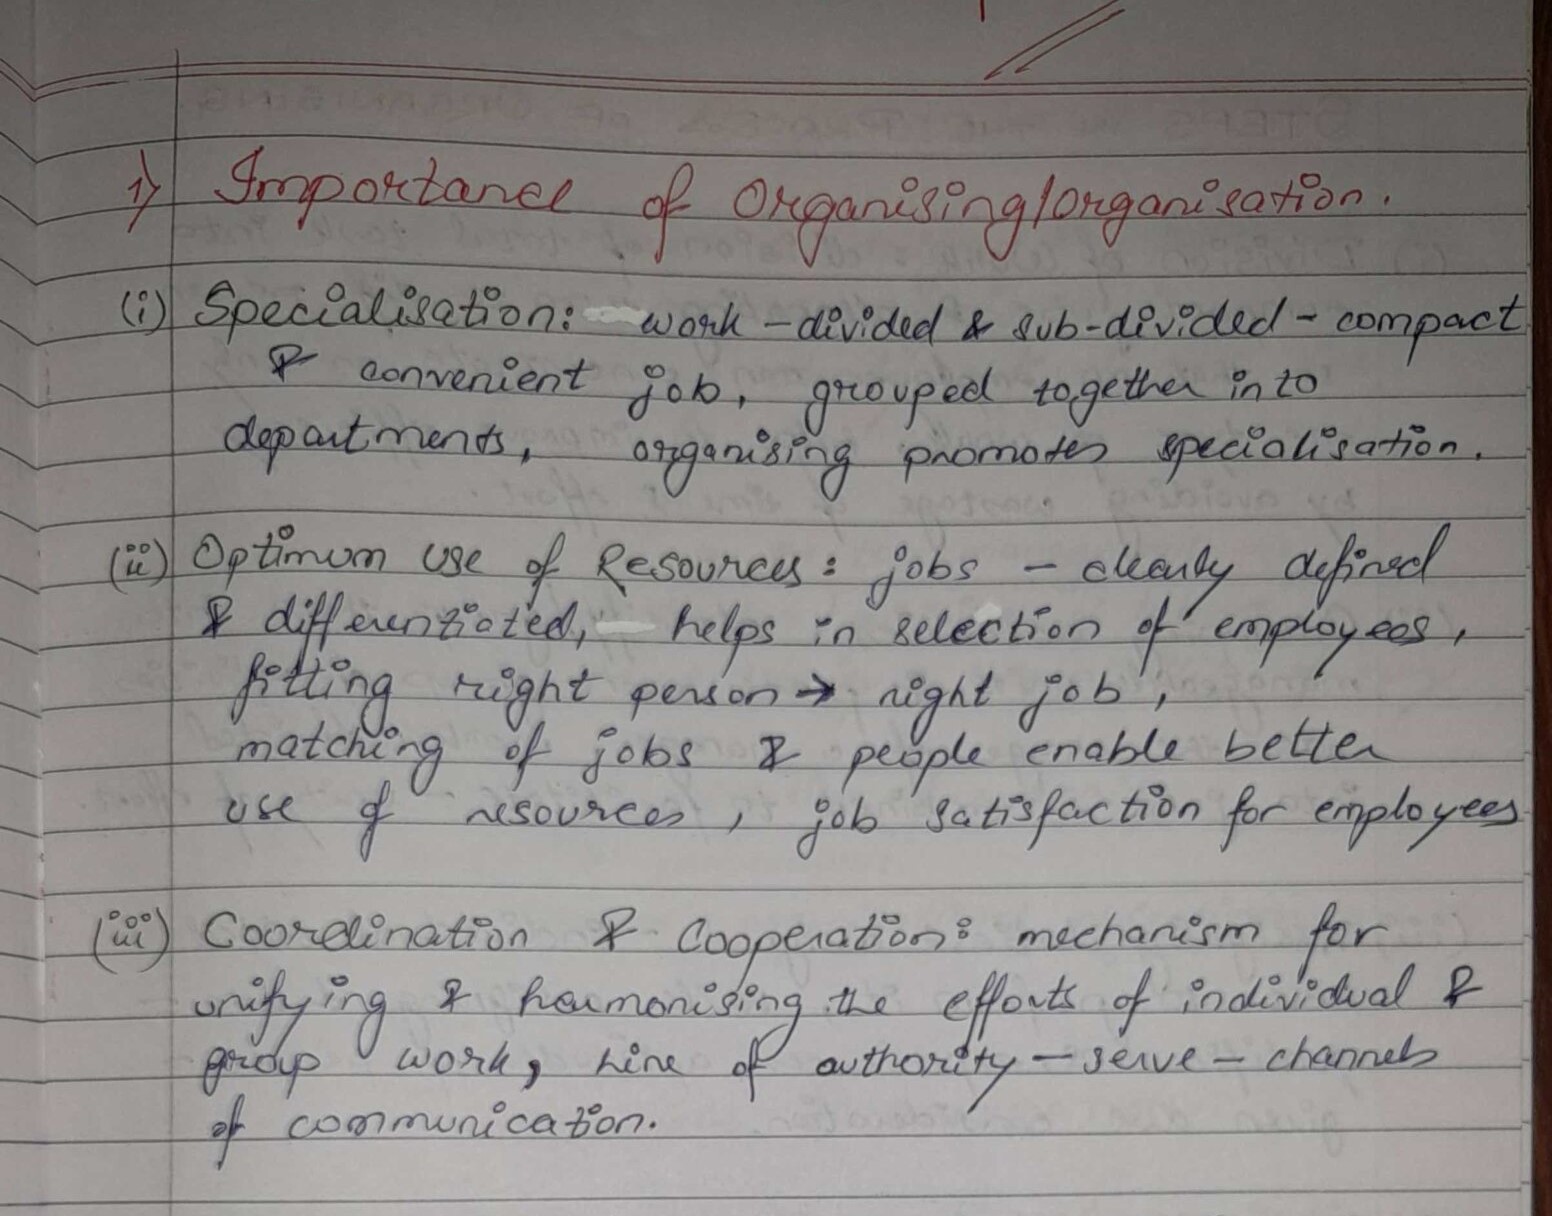 1) Importance of Organising/organisation.
(i) Specialisation: work - divided & sub-divided - compact
& convenient job, grouped together into
departments, organising promotes specialisation.
(ii) Optimum use of Resources: jobs - clearly defined
& differentiated, helps in selection of employees,
fitting right person → right job,
matching of jobs & people enable better
use of resources, job satisfaction for employees
(iii) Coordination & Cooperation: mechanism for
unifying & harmonising the efforts of individual &
group work, Line of authority - serve - channels
of communication.